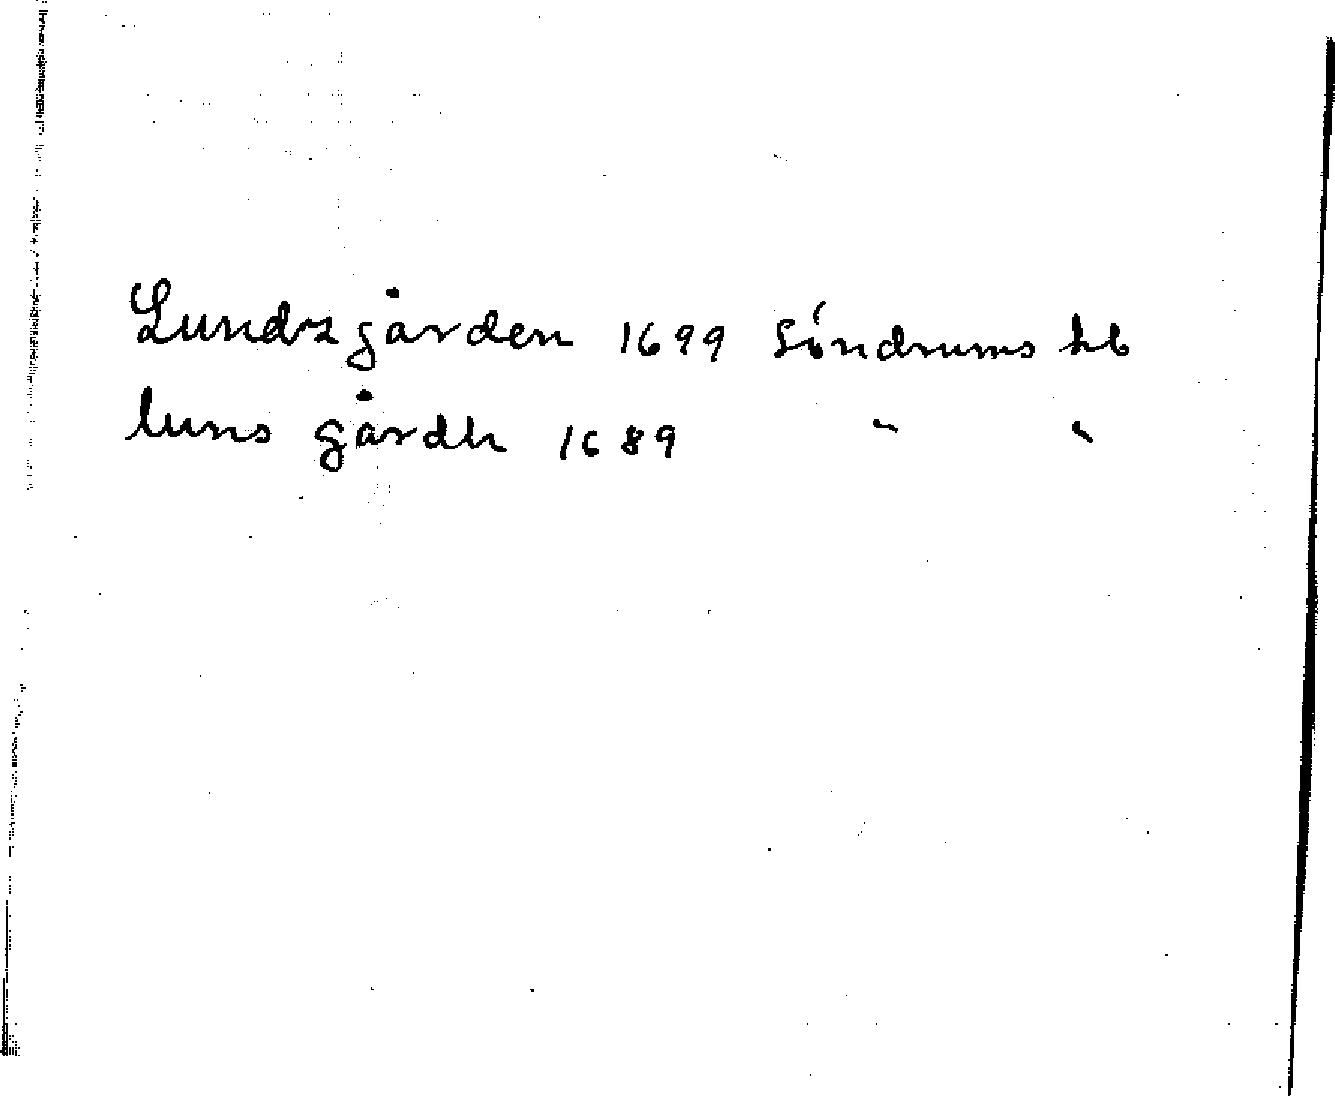 Lundzgården 1699 Söndrums kb
luns gårdh 1689 " "